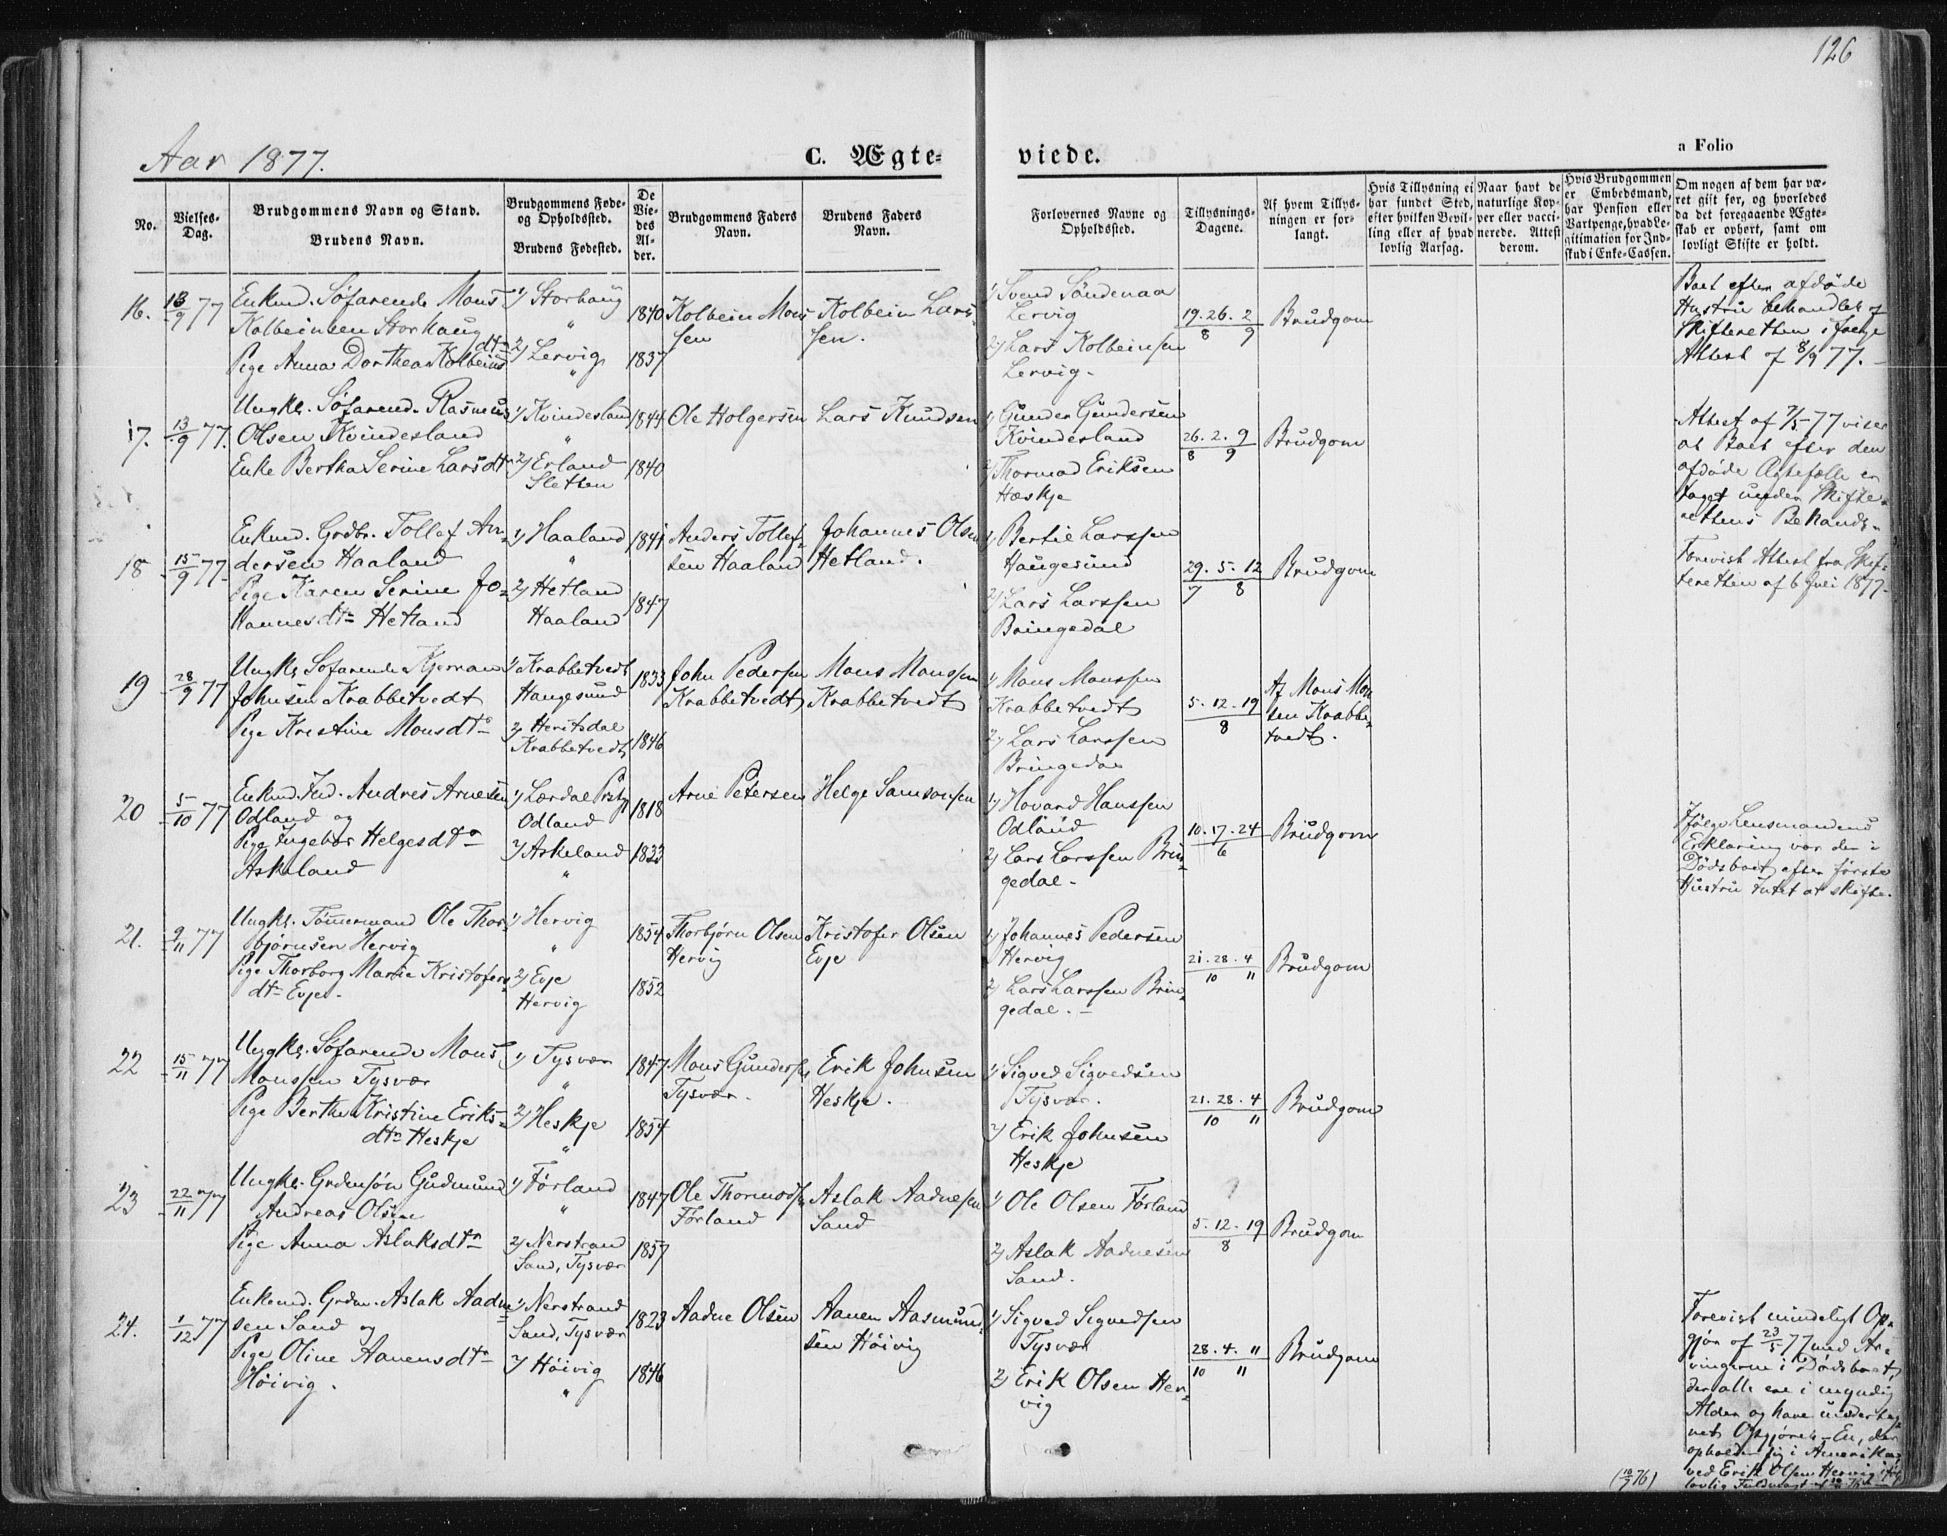 126
Aar 1877.
C. Ægteviede.
a Folio
No.
Vielses-Dag.
Brudgommens Navn og Stand.
Brudens Navn.
Brudgommens Føde- og Opholdssted.
Brudens Fødested.
De Viedes Alder.
Brudgommens Faders Navn.
Brudens Faders Navn.
Forlovernes Navne og Opholdssted.
Tillysnings-Dagene.
Af hvem Tillysningen er forlangt.
Hvis Tillysning ei har fundet Sted, efter hvilken Bevilling eller af hvad lovlig Aarsag.
Naar havt de naturlige Kopper eller vaccinerede. Attest derom.
Hvis Brudgommen er Embedsmand, har Pension eller Vartpenge, hvad Legitimation for Indskud i Enke-Cassen.
Om nogen af dem har været gift før, og hvorledes da det foregaaende Ægteskab er ophørt, samt om lovligt Skifte er holdt.
16. 13/9 77
Enkmd. Søfarende Mons
Kolbeinsen Storhaug
Pige Anna Dorthea Kolbeinsdtr
1) Storhaug
"
2) Lervig
"
1840
1837
Kolbein Monssen
Kolbein Larssen.
1) Svend Søndenaa
Lervig
2) Lars Kolbeinsen
Lervig.
19. 26. 2
8 9
Brudgom
Boet efter afdøde
Hustru behandlet af
Skifteretten ifølge
Attest af 8/9 77.
17. 13/9 77.
Ungkl. Søfarend. Rasmus
Olsen Kvindesland
Enke Bertha Serine Larsdtr
1) Kvindesland
"
2) Erland
Sletten
1844
1840
Ole Holgersen
Lars Knudsen
1) Gunder Gundersen
Kvindesland
2) Thormod Eriksen
Heskje
26. 2. 9
8 9
Brudgom
Attest af 7/5 77 viser
at Boet efter den
afdøde Ægtefælle er
taget under Skifterettens Behandl.
18 15/9 77
Enkmd. Grdbr. Tollef Andersen Haaland
Pige Karen Serine Johannesdtr Hetland
1) Haaland
"
2) Hetland
Haaland
1841
1847
Anders Tollefsen Haaland
Johannes Olsen
Hetland.
1) Bertil Larssen
Haugesund
2) Lars Larssen
Bringedal
29. 5. 12
7 8
Brudgom
Forevist Attest fra Skifteretten af 6 Juli 1877.
19 28/9 77
Ungkl. Søfarende Kjernan
Johnsen Krabbetvedt
Pige Kristine Monsdtr
1) Krabbetvedt
Haugesund
2) Heritsdal
Krabbetvedt
1833
1846
John Pedersen
Krabbetvedt
Mons Monssen
Krabbetvedt
1) Mons Monssen
Krabbetvedt
2) Lars Larssen
Bringedal
5. 12. 19
8
Af Mons Monsen Krabbetvedt.
20 5/10 77
Enkmd. Ind. Andres Arnesen
Odland og
Pige Ingebor Helgesdtr
Askeland
1) Lærdal Prstgj
Odland
2) Askeland
"
1818
1833
Arne Petersen
Helge Samsonsen
1) Hovard Hanssen
Odland
2) Lars Larssen Bringedal.
10. 17. 24
6
Brudgom
Ifølge Lensmandens
Erklæring var der i
Dødsboet efter første
Hustru Intet at skifte.
21. 9/11 77
Ungkl. Tømmermand Ole Thorbjørnsen Hervig
Pige Thorborg Marie Kristofersdtr Evje.
1) Hervig
"
2) Evje
Hervig
1854
1852
Thorbjørn Olsen
Hervig
Kristofer Olsen
Evje
1) Johannes Pedersen
Hervig
2) Lars Larssen Bringedal.
21. 28. 4
10 11
Brudgom
22 15/11 77
Ungkl. Søfarende Mons
Monssen Tysvær
Pige Berthe Kristine Eriksdtr Heskje
1) Tysvær
"
2) Heskje
"
1847
1854
Mons Gunderss.
Tysvær.
Erik Johnsen
Heskje.
1) Sigved Sigvedsen
Tysvær.
2) Erik Johnsen
Heskje
21. 28. 4
10 11
Brudgom
23 22/11 77
Ungkl. Grdmsøn Gudmund
Andreas Olsen
Pige Anna Aslaksdtr
1) Førland
"
2) Nerstrand
Sand, Tysvær
1847
1857
Ole Thormodss.
Førland
Aslak Aadnessen
Sand
1) Ole Olsen Førland
2) Aslak Aadnesen
Sand.
5. 12. 19
8
Brudgom
24. 1/12 77
Enkemd. Grdm. Aslak Aadnesen Sand og
Pige Oline Aanensdtr
Høivig.
1) Nerstrand
Sand, Tysvær
2) Høivig
"
1823
1846
Aadne Olsen
Aanen Aasmundsen Høivig
1) Sigved Sigvedsen
Tysvær
2) Erik Olsen Hervig
28. 4. 11
10 11
Brudgom
Forevist mindeligt Opgjør af 23/5 77 med Arvingerne i Dødsboet,
der alle ere i myndig
Alder og have undertegnet Opgjøret. En, der
opholder sig i Amerika,
ved Erik Olsen Hervig
lovlig Fuldmagt
(10/7 76)